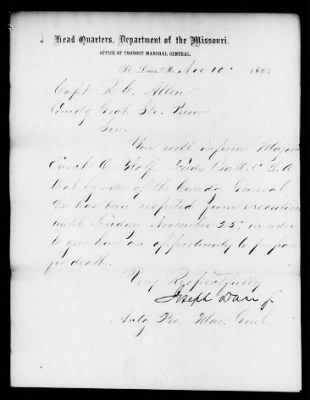 Head Quarters, Department of the Missouri.
OFFICE OF PROVOST MARSHAL GENERAL.
St. Louis, Mo., Nov 10" 186
Capt R. C. Allen
Comdg Grat. St. Prison
Sir.
You will inform Major
Enoch O Wolf, Fords Batt. C. S. A
that by order of the Comdg General
he has been respited from execution
until Friday November 25" in order
to give him an opportunity to prepare
for death.
Very Respectfully
Joseph Darr Jr
Actg Pro. Mar. Genl.